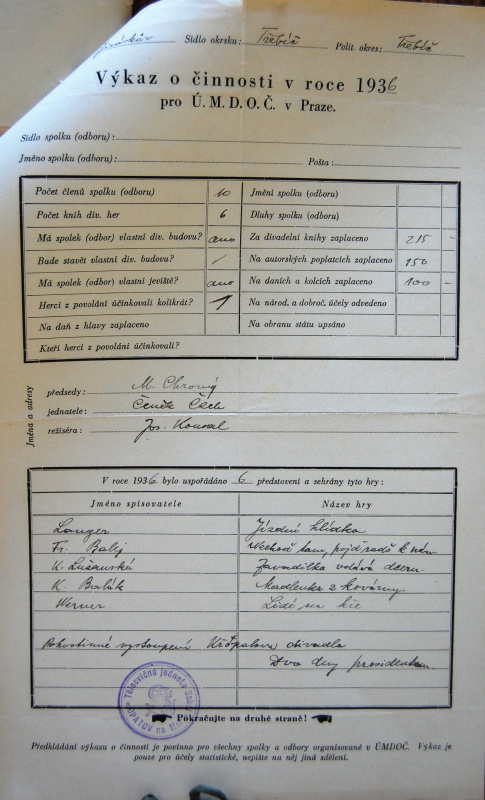 Sídlo okrsku: Třebíč Polit. okres: Třebíč
Výkaz o činnosti v roce 1936
pro Ú. M. D. O. Č. v Praze.
Sídlo spolku (odboru):
Jméno spolku (odboru): Pošta:
Počet členů spolku (odboru) 10 Jmění spolku (odboru)
Počet knih div. her 6 Dluhy spolku (odboru)
Má spolek (odbor) vlastní div. budovu? ano Za divadelní knihy zaplaceno 215 –
Bude stavět vlastní div. budovu? / Na autorských poplatcích zaplaceno 150
Má spolek (odbor) vlastní jeviště? ano Na daních a kolcích zaplaceno 100 –
Herci z povolání účinkovali kolikrát? 1 Na národ. a dobroč. účely odvedeno
Na daň z hlavy zaplaceno Na obranu státu upsáno
Kteří herci z povolání účinkovali?
Jména a adresy
předsedy: M. Chromý
jednatele: Čeněk Čech
režiséra: Jos. Konsal
V roce 1936 bylo uspořádáno 6 představení a sehrány tyto hry:
Jméno spisovatele Název hry
Langer Jízdní hlídka
Fr. Balej tam, pojď radš k nám
K. Zavadilka volává dceru.
K. Balák Madlenka z kovárny
Werner Lidé na kře
Pohostinné vystoupení divadla
Dva dny presidentem.
Tělocvičná jednota Sokol
OPATOV na Mor.
Pokračujte na druhé straně!
Předkládání výkazu o činnosti je povinno pro všechny spolky a odbory organisované v ÚMDOČ. Výkaz je
pouze pro účely statistické, nepište na něj jiná sdělení.